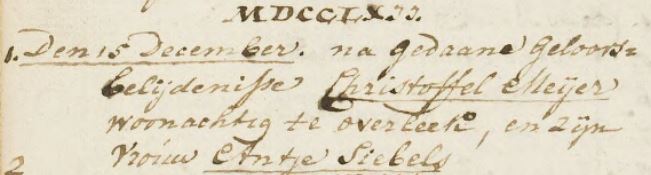 MDCCLXII.
1. Den 15 December. na gedaane geloofs=
belijdenisse Christoffel Meijer
woonachtig te overleek, en zijn
2 vrouw Antje Siebels